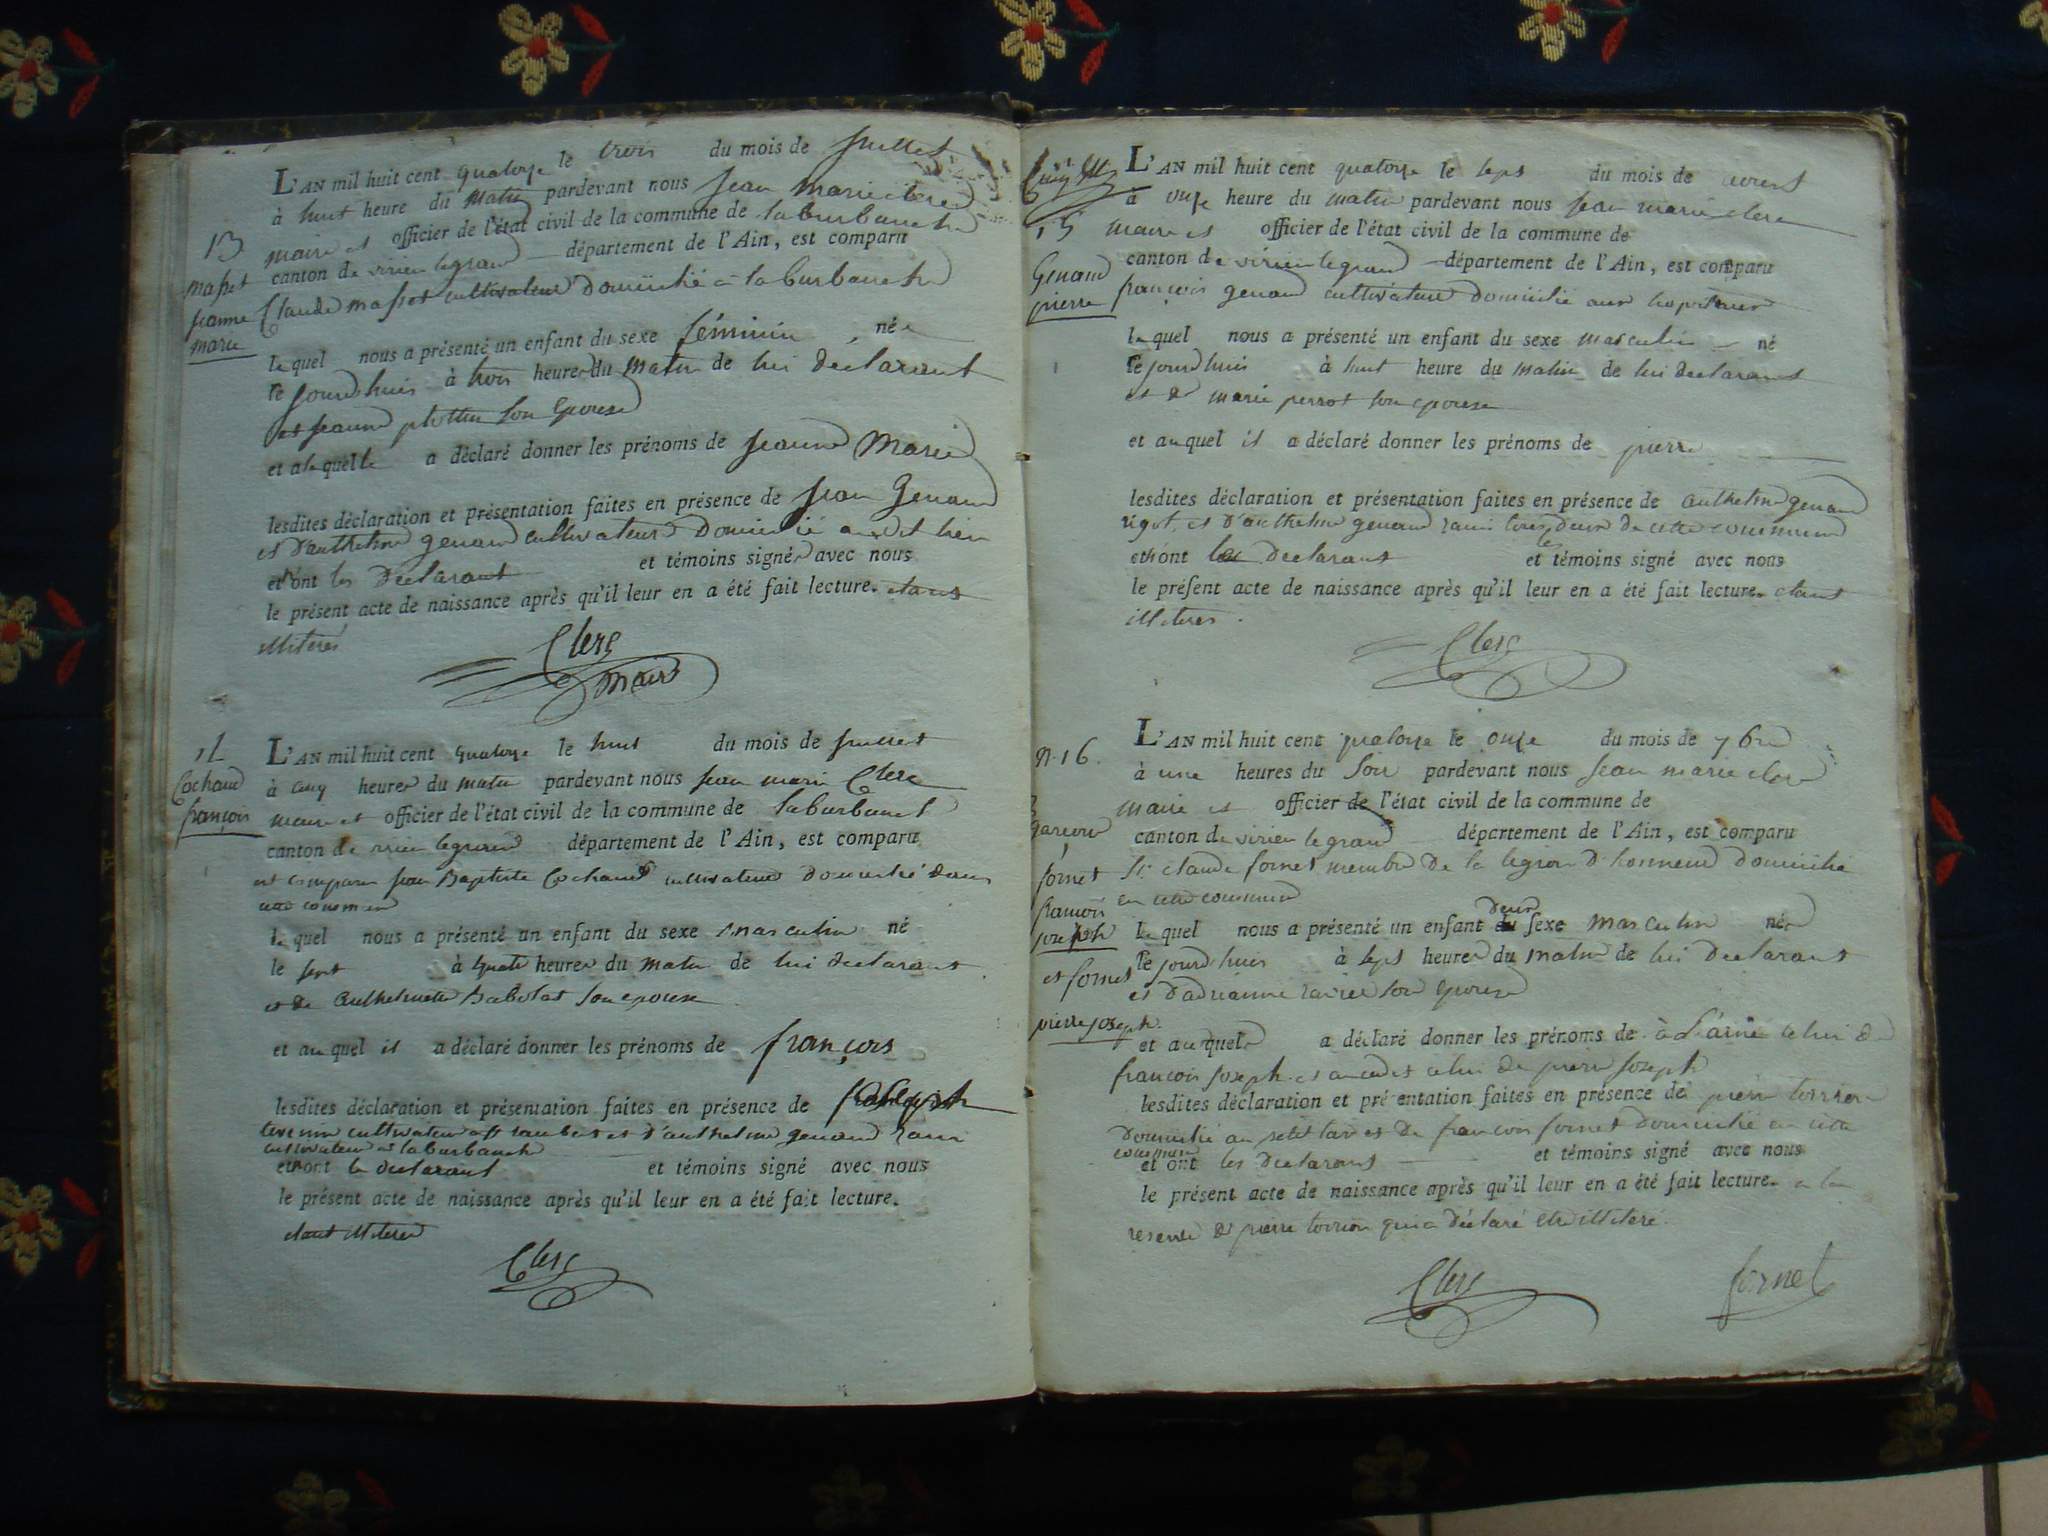 L'AN mil huit cent quatorze le trois du mois de juillet
à huit heure du matin pardevant nous Jean marie clerc
13 maire et officier de l'état civil de la commune de la burbanche
canton de virieu legrand département de l'Ain, est comparu
masset
Claude masset cultivateur domicilié à la burbanche
jeanne
marie
lequel nous a présenté un enfant du sexe féminin née
le jourdhuis à trois heures du matin de lui déclarant
et jeanne plottin son épouse
et alaquelle a déclaré donner les prénoms de jeanne Marie
lesdites déclaration et présentation faites en présence de jean Genand
et d'anthelme genand cultivateurs domicilié audit lieu
et n'ont les déclarant et témoins signé avec nous
le présent acte de naissance après qu'il leur en a été fait lecture. etants
illiterés
Clerc
maire
L'AN mil huit cent quatorze le huit du mois de juillet
Cochand
françois
à cinq heures du matin pardevant nous jean marie Clerc
maire et officier de l'état civil de la commune de laburbanche
canton de virieu legrand département de l'Ain, est comparu
est comparu jean Baptiste Cochand cultivateur domicilié dans
cette commune
lequel nous a présenté un enfant du sexe masculin né
le sept à quatre heures du matin de lui declarant
et de anthelmette Babolat son epouse
et auquel il a déclaré donner les prénoms de françois
lesdites déclaration et présentation faites en présence de
cultivateur et d'anthelme genand
cultivateur à laburbanche
et n'ont le declarant et témoins signé avec nous
le présent acte de naissance après qu'il leur en a été fait lecture.
etant illiteres
Clerc
L'AN mil huit cent quatorze le sept du mois de aoust
à onze heure du matin pardevant nous jean marie clerc
15 maire et officier de l'état civil de la commune de
Genand
pierre
canton de virieu legrand département de l'Ain, est comparu
françois genand cultivateur domicilié aux hopitaux
lequel nous a présenté un enfant du sexe masculin né
le jourdhuis à huit heure du matin de lui declarant
et de marie perrot son epouse
et auquel il a déclaré donner les prénoms de pierre
lesdites déclaration et présentation faites en présence de anthelme genand
rigot et d'anthelme genand tous deux de cette commune
et n'ont les declarant et témoins signé avec nous
le présent acte de naissance après qu'il leur en a été fait lecture. etant
illiteres.
Clerc
N. 16.
L'AN mil huit cent quatorze le onze du mois de 7bre
à une heures du soir pardevant nous jean marie clerc
maire et officier de l'état civil de la commune de
canton de virieu legrand département de l'Ain, est comparu
fornet
françois
joseph
et fornet
pierre joseph.
Sr claude fornet membre de la legion d'honneur domicilié
en cette commune
lequel nous a présenté un enfant deux du sexe masculin née
le jourdhuis à sept heures du matin de lui declarant
et d'adrianne ravier son epouse
et auquels a déclaré donner les prénoms de à L'ainé celui de
françois joseph et au cadet celui de pierre joseph
lesdites déclaration et présentation faites en présence de pierre torrion
domicilié au et de françois fornet domicilié en cette
commune
et ont les declarant et témoins signé avec nous
le présent acte de naissance après qu'il leur en a été fait lecture. a la
reserve de pierre torrion qui a déclaré etre illiteré.
Clerc fornet